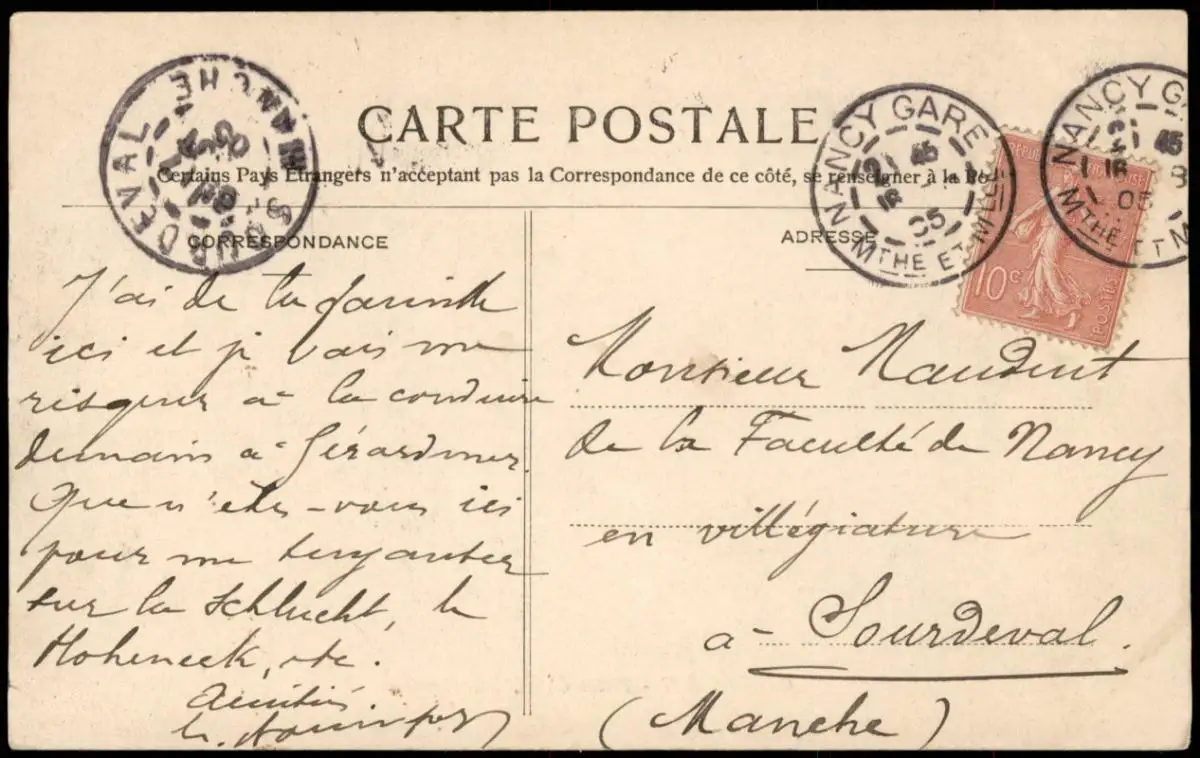 CARTE POSTALE
Certains Pays Etrangers n'acceptant pas la Correspondance de ce côté, se renseigner à la Po
CORRESPONDANCE
J'ai de la famille
ici et je vais me
risquer à la conduire
demain à Gérardmer.
Que n'êtes-vous ici
pour me tuyauter
sur la Schlucht, le
Hoheneck, etc.
Amitiés
ADRESSE
Monsieur
de la Faculté de Nancy
en villégiature
à Sourdeval.
(Manche)
SOURDEVAL
MANCHE
NANCY GARE
MTHE ET MLLE
16
05
NANCY G
MTHE ET M
16
05
10c
POSTES